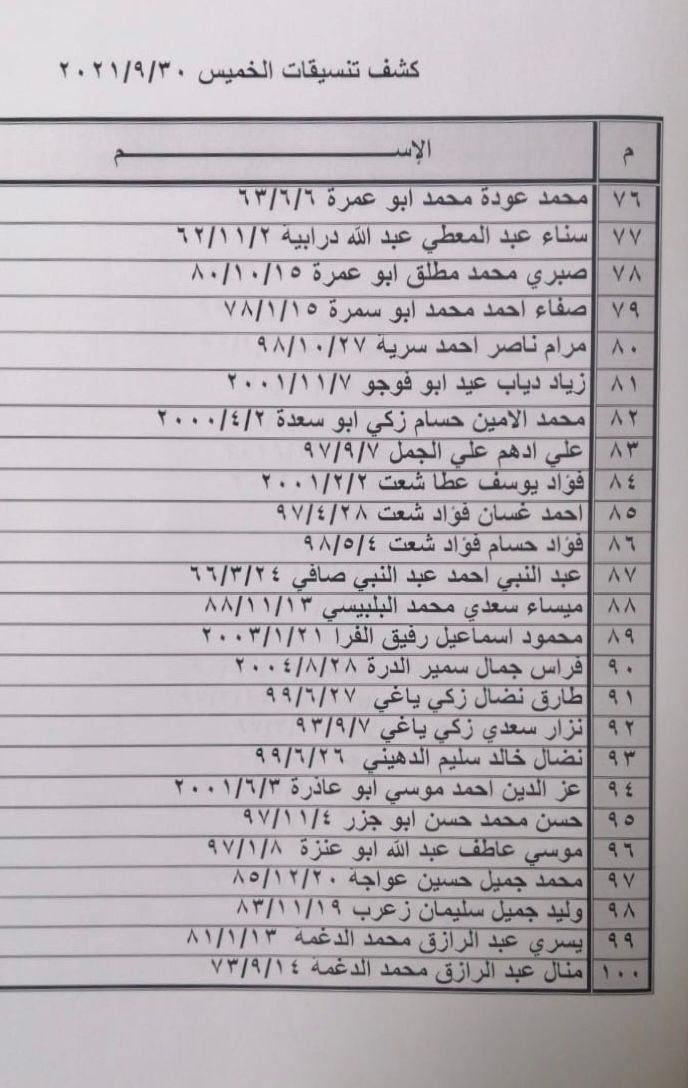 كشف تنسيقات الخميس ٢٠٢١/٩/٣٠
م الإســـــــــــــــم
٧٦ محمد عودة محمد ابو عمرة ٦٣/٦/٦
٧٧ سناء عبد المعطي عبد الله درابية ٦٢/١١/٢
٧٨ صبري محمد مطلق ابو عمرة ٨٠/١٠/١٥
٧٩ صفاء احمد محمد ابو سمرة ٧٨/١/١٥
٨٠ مرام ناصر احمد سرية ٩٨/١٠/٢٧
٨١ زياد دياب عيد ابو فوجو ٢٠٠١/١١/٧
٨٢ محمد الامين حسام زكي ابو سعدة ٢٠٠٠/٤/٢
٨٣ علي ادهم علي الجمل ٩٧/٩/٧
٨٤ فؤاد يوسف عطا شعت ٢٠٠١/٢/٢
٨٥ احمد غسان فؤاد شعت ٩٧/٤/٢٨
٨٦ فؤاد حسام فؤاد شعت ٩٨/٥/٤
٨٧ عبد النبي احمد عبد النبي صافي ٦٦/٣/٢٤
٨٨ ميساء سعدي محمد البلبيسي ٨٨/١١/١٣
٨٩ محمود اسماعيل رفيق الفرا ٢٠٠٣/١/٢١
٩٠ فراس جمال سمير الدرة ٢٠٠٤/٨/٢٨
٩١ طارق نضال زكي ياغي ٩٩/٦/٢٧
٩٢ نزار سعدي زكي ياغي ٩٣/٩/٧
٩٣ نضال خالد سليم الدهيني ٩٩/٦/٢٦
٩٤ عز الدين احمد موسي ابو عاذرة ٢٠٠١/٦/٣
٩٥ حسن محمد حسن ابو جزر ٩٧/١١/٤
٩٦ موسي عاطف عبد الله ابو عنزة ٩٧/١/٨
٩٧ محمد جميل حسين عواجة ٨٥/١٢/٢٠
٩٨ وليد جميل سليمان زعرب ٨٣/١١/١٩
٩٩ يسري عبد الرازق محمد الدغمة ٨١/١/١٣
١٠٠ منال عبد الرازق محمد الدغمة ٧٣/٩/١٤